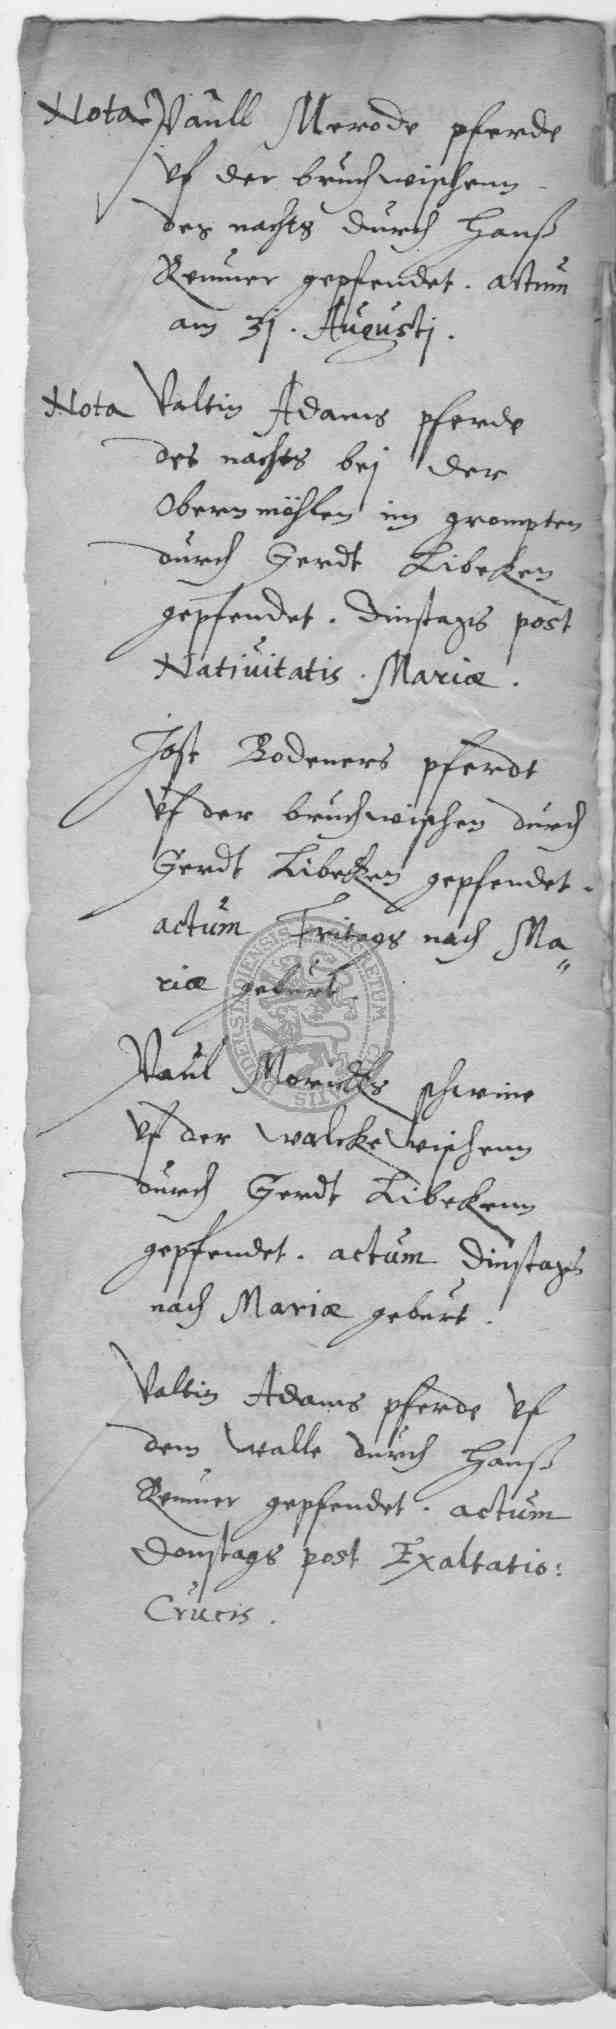 Nota Paull Merode pferde
vf der bruchwischenn
des nachts durch Hanß
Remner gepfendet. actum
am 31. Augustj.
Nota Valtin Adams pferde
des nachts bej der
Obernmöhlen im grompten
durch Gerdt Libeken
gepfendet. Dinstags post
Nativitatis. Mariæ.
Jost Bodeners pferdt
vf der bruchwischen durch
Gerdt Libecken gepfendet.
actum Fritags nach Ma„
riæ geburt.
Paul schwine
vf der walckewischenn
durch Gerdt Libekenn
gepfendet. actum Dinstags
nach Mariæ geburt.
Valtin Adams pferde vf
dem walle durch Hanß
Remner gepfendet. actum
Donstags post Exaltatio:
Crucis.